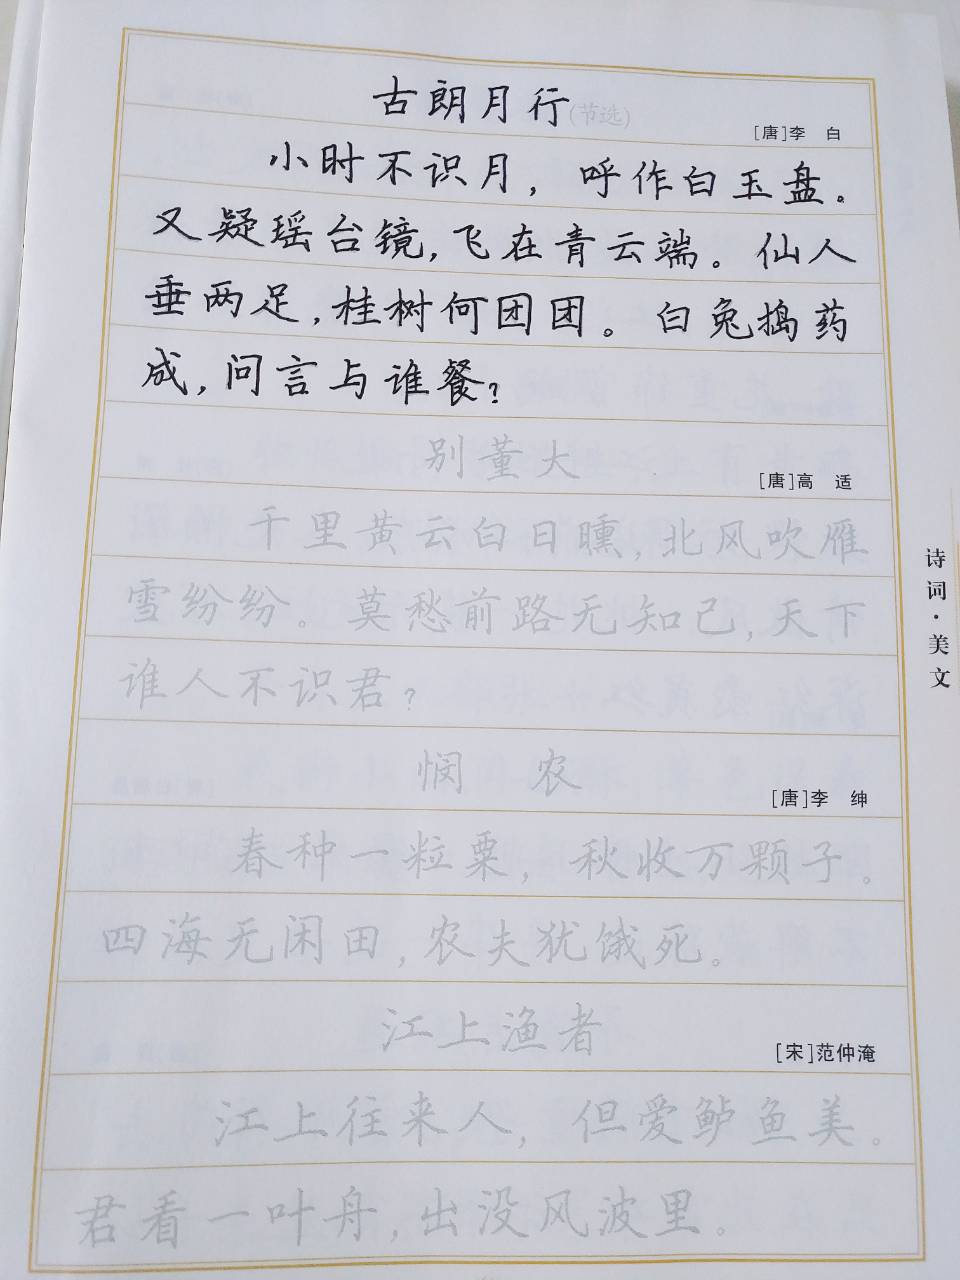 古朗月行(节选)
[唐]李 白
小时不识月，呼作白玉盘。
又疑瑶台镜，飞在青云端。仙人
垂两足，桂树何团团。白兔捣药
成，问言与谁餐？
别董大
[唐]高 适
千里黄云白日曛，北风吹雁
雪纷纷。莫愁前路无知己，天下
谁人不识君？
悯 农
[唐]李 绅
春种一粒粟，秋收万颗子。
四海无闲田，农夫犹饿死。
江上渔者
[宋]范仲淹
江上往来人，但爱鲈鱼美。
君看一叶舟，出没风波里。
诗词·美文